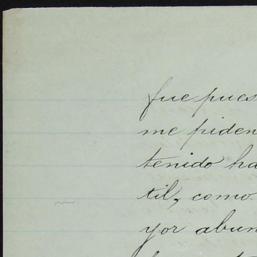 fue pues
me piden
tenido ha
til, como
yor abun